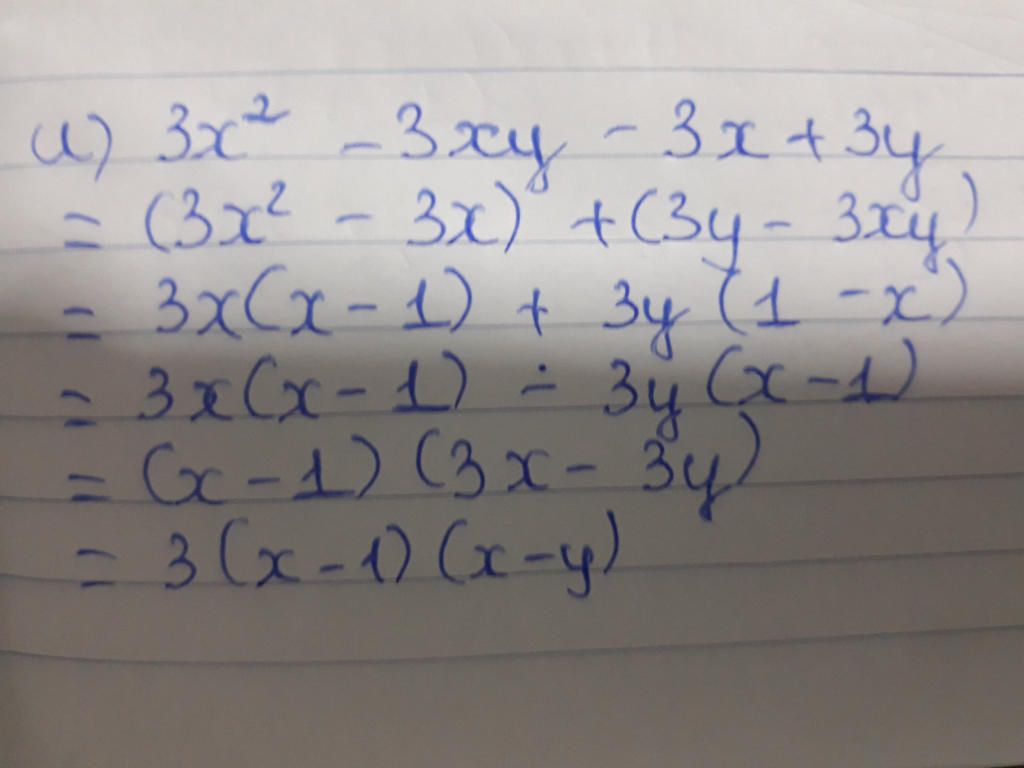 a) 3x² - 3xy - 3x + 3y
= (3x² - 3x) + (3y - 3xy)
= 3x(x - 1) + 3y(1 - x)
= 3x(x - 1) - 3y(x - 1)
= (x - 1)(3x - 3y)
= 3(x - 1)(x - y)